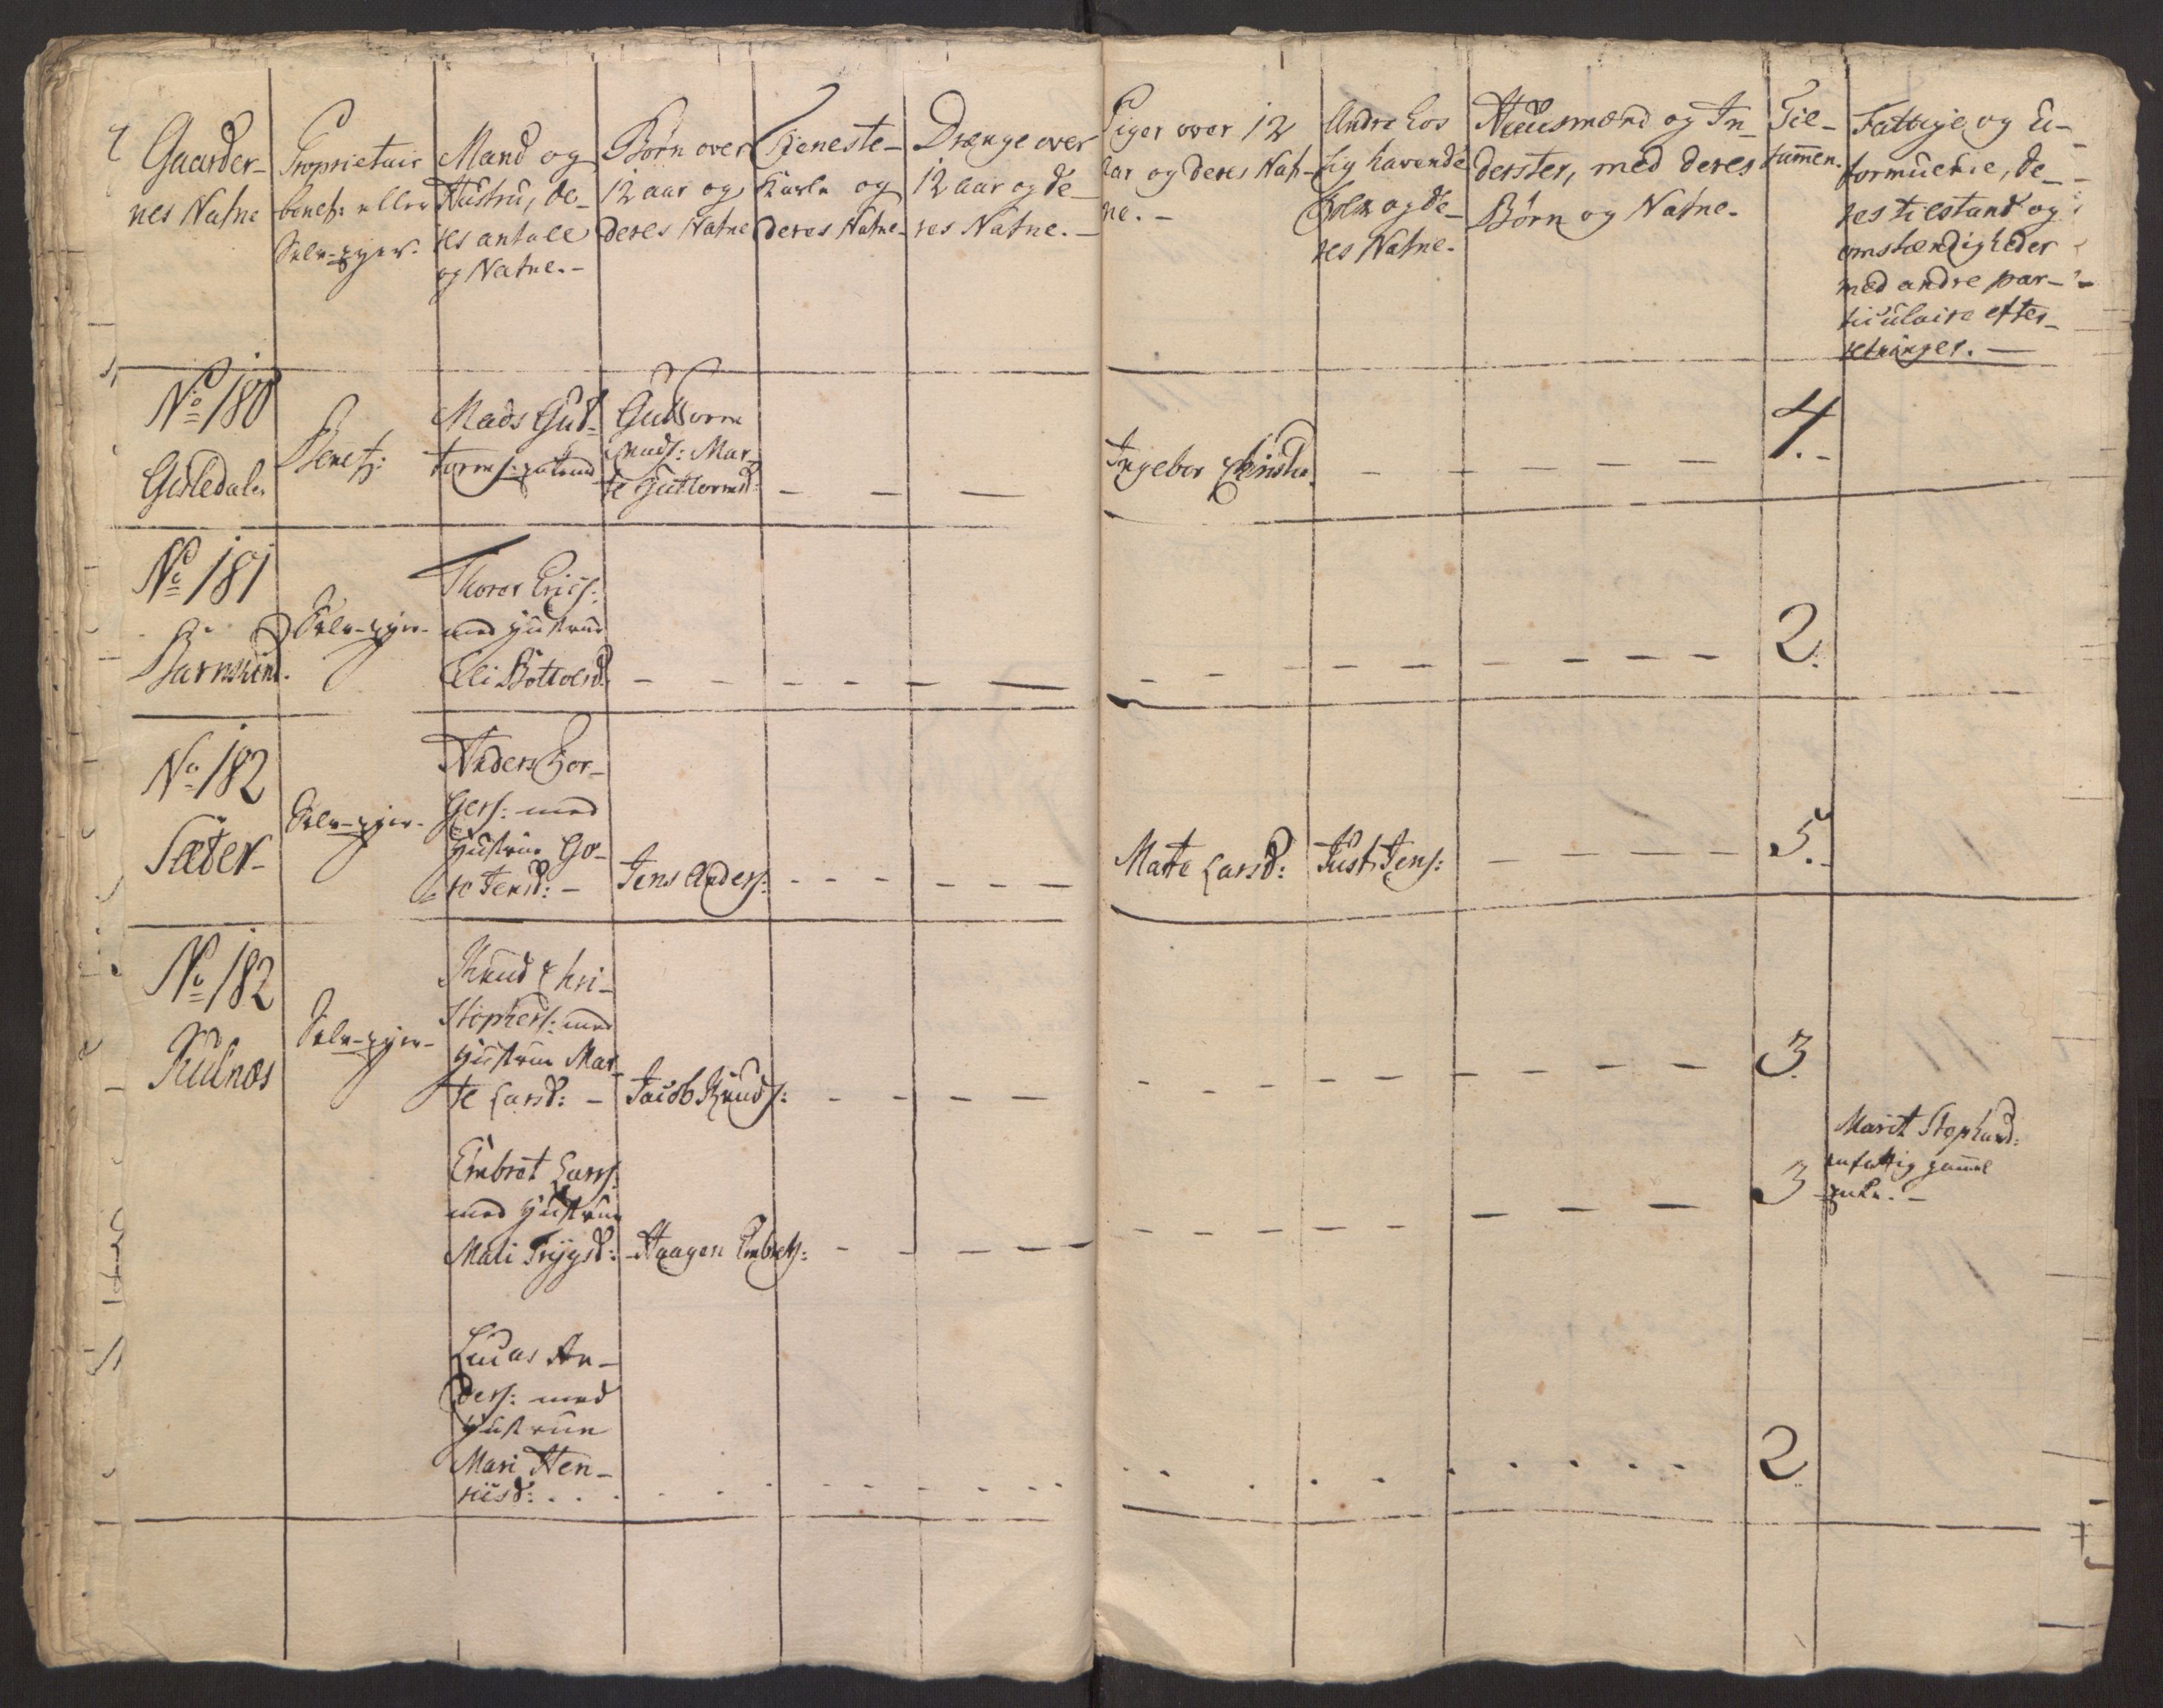 Gaarder-
nes Nafne
Proprietair
benef: eller
Selv-eyer.
Mand og
Hustru, de-
res antall
og Nafne.-
Børn over
12 aar og
deres Nafne
Tieneste-
Karle og
deres Nafne-
Drænge over
12 aar og de-
res Nafne.-
Piger over 12
aar og deres Naf-
ne.-
Andre hos
sig havende
Folk og de-
res Nafne.
Huusmænd og In-
derster, med deres
Børn og Nafne.
Til-
sammen.
Fattige og U-
formuende, de-
res tilstand og
omstændigheder
med andre par-
ticulaire efter-
retninger.-
No 180
Gisledal
Benef:
Mads Gut-
torms:
Guttorm
Mads: Mar-
te Guttormsd:
Ingebor Christ
4.-
No 181
Selv-eyer-
Thorer Erics:
med Hustrue
Eli Bottolsd:
2.
No 182
Sæter-
Selv-eyer-
Anders Bor-
gers: med
Hustrue Go-
ro Jensd:-
Jens Anders:
Marte Larsd:
Just Jens:
5.-
No 182
Kulnos
Selv-eyer-
Knud Chri-
stophers: med
Hustrue Mar-
te Larsd:-
Jacob Knuds:
3.
Embret Larss:
med Hustrue
Mari Trygsd:
Haagen Embrets:
3
Marit Stephensd:
en fattig gammel
Enke.-
Lucas An-
ders: med
Hustrue
Mari Hen-
risd:
2.